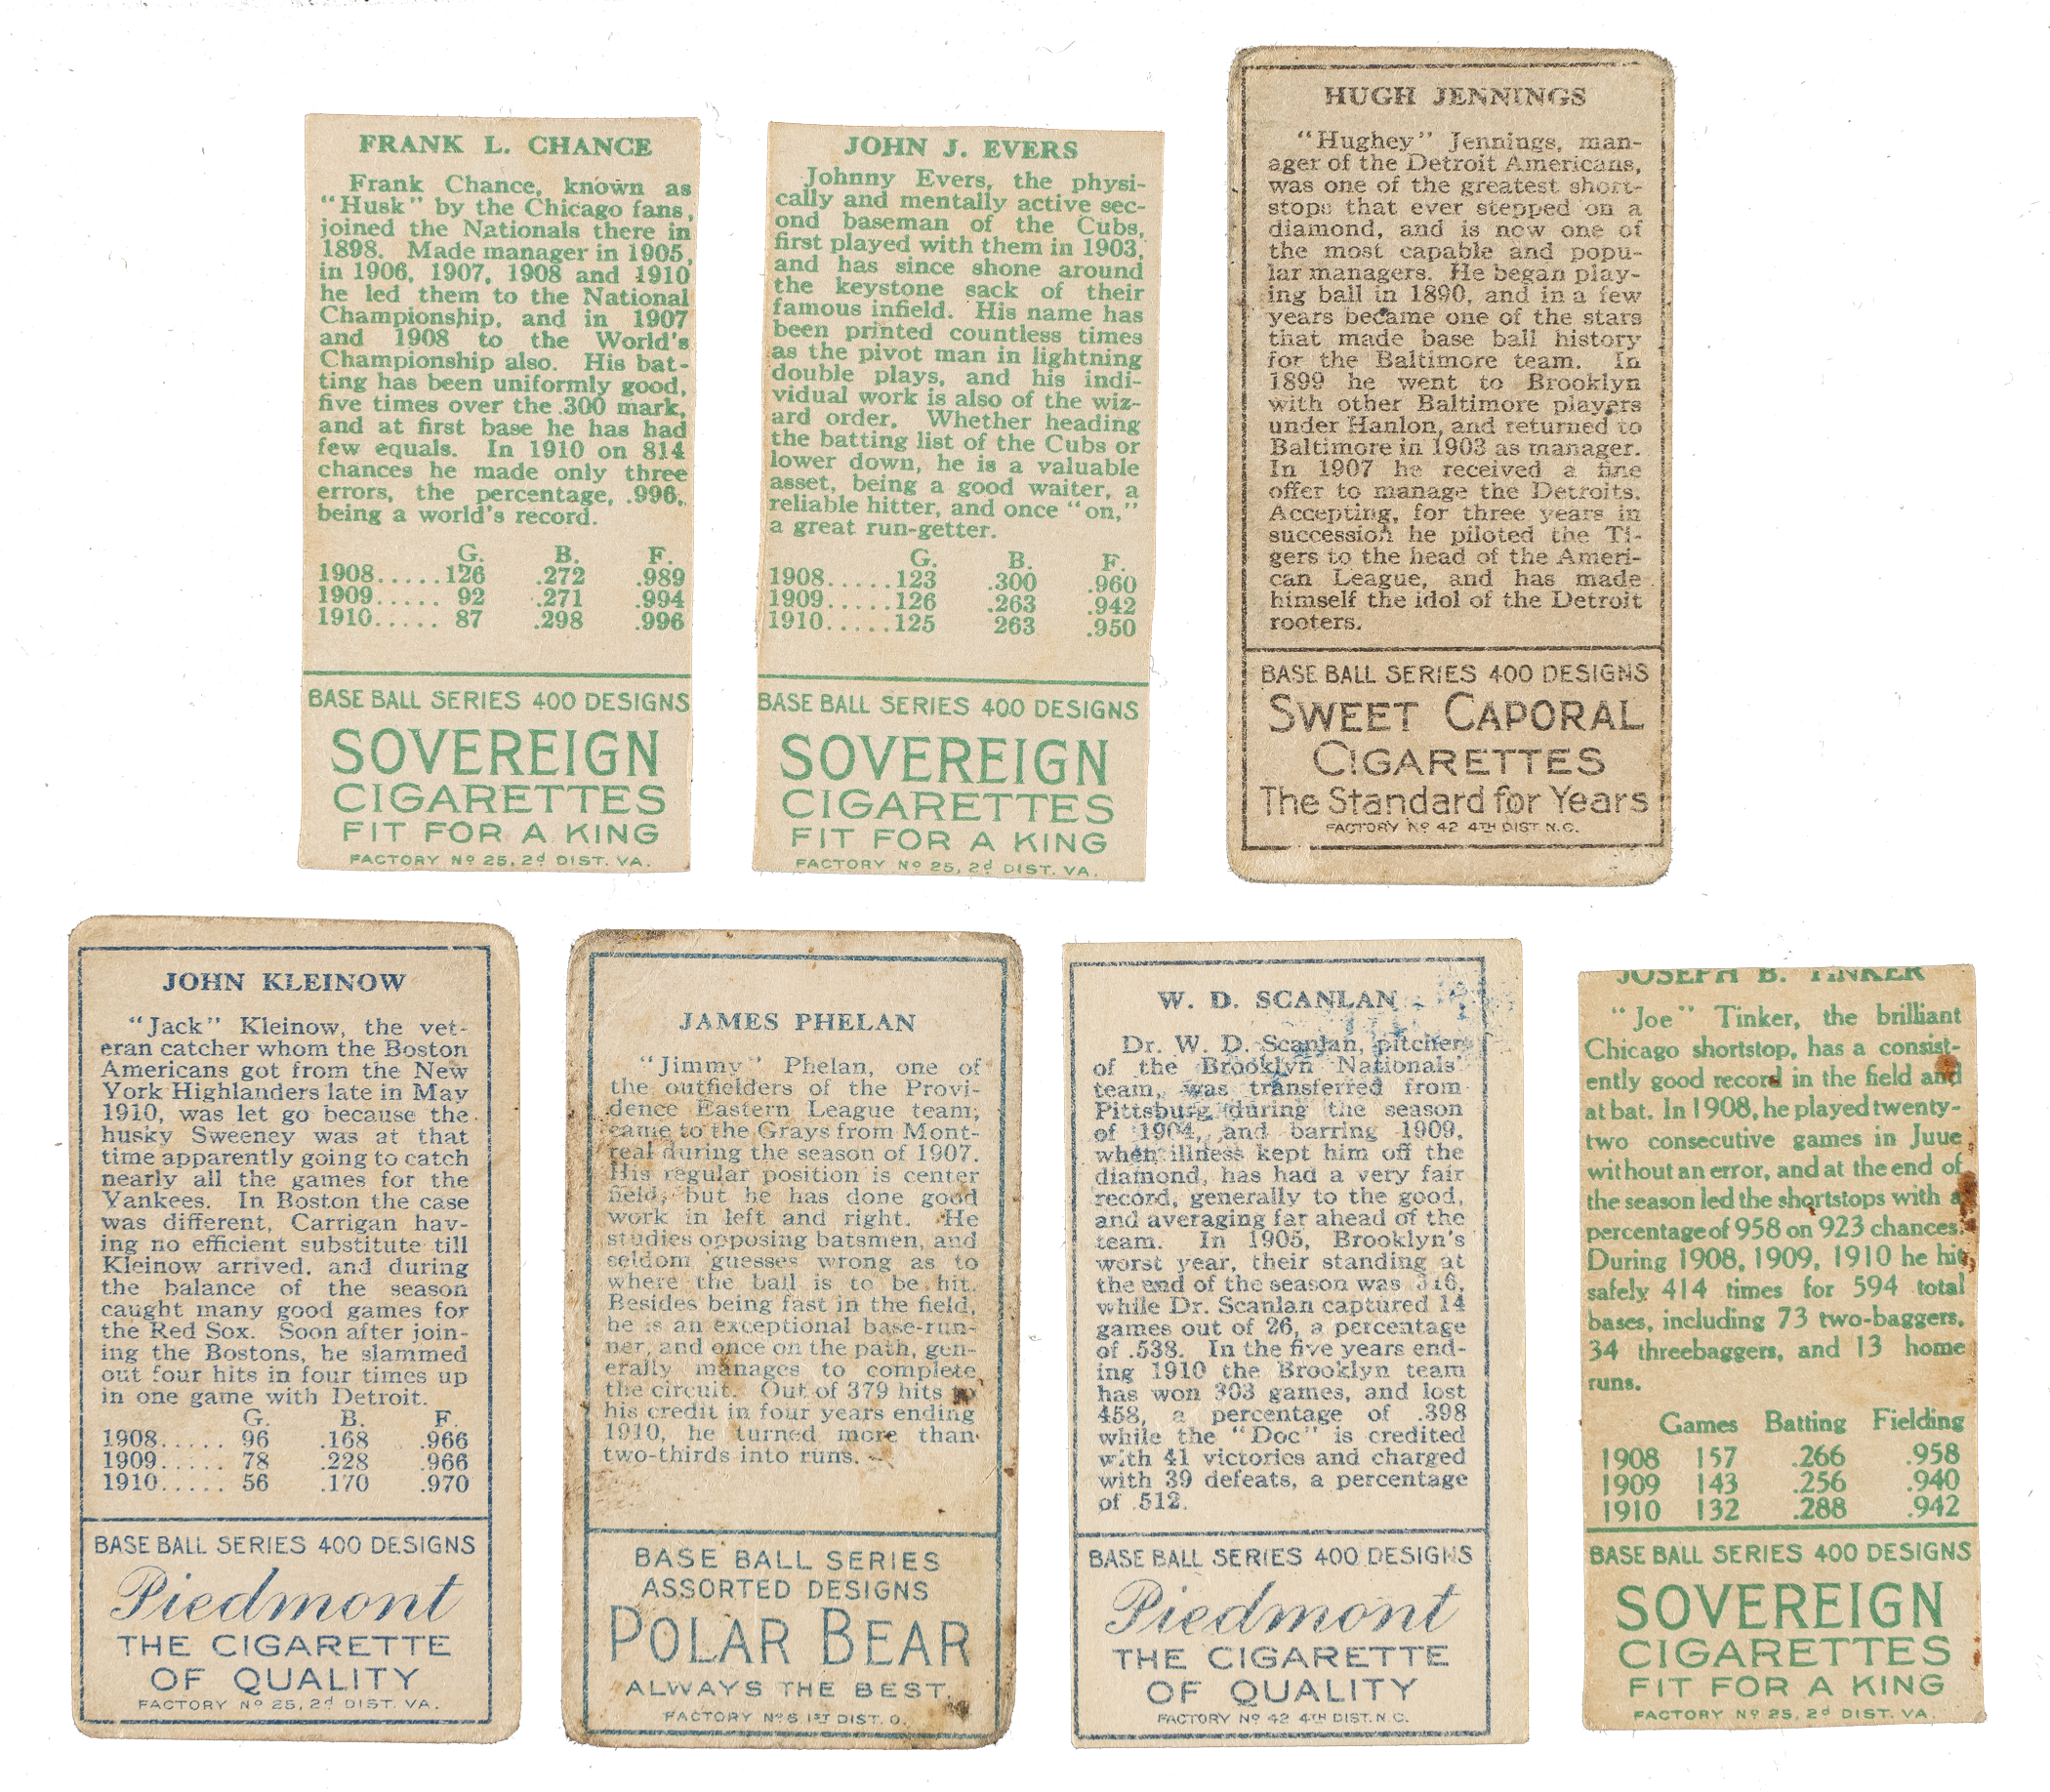 FRANK L. CHANCE
Frank Chance, known as
"Husk" by the Chicago fans,
joined the Nationals there in
1898. Made manager in 1905,
in 1906, 1907, 1908 and 1910
he led them to the National
Championship, and in 1907
and 1908 to the World's
Championship also. His bat-
ting has been uniformly good,
five times over the .300 mark,
and at first base he has had
few equals. In 1910 on 814
chances he made only three
errors, the percentage, .996,
being a world's record.
G. B. F.
1908.....126 .272 .989
1909..... 92 .271 .994
1910..... 87 .298 .996
BASE BALL SERIES 400 DESIGNS
SOVEREIGN
CIGARETTES
FIT FOR A KING
FACTORY No 25, 2d DIST. VA.
JOHN J. EVERS
Johnny Evers, the physi-
cally and mentally active sec-
ond baseman of the Cubs,
first played with them in 1903,
and has since shone around
the keystone sack of their
famous infield. His name has
been printed countless times
as the pivot man in lightning
double plays, and his indi-
vidual work is also of the wiz-
ard order. Whether heading
the batting list of the Cubs or
lower down, he is a valuable
asset, being a good waiter, a
reliable hitter, and once "on,"
a great run-getter.
G. B. F.
1908.....123 .300 .960
1909.....126 .263 .942
1910.....125 263 .950
BASE BALL SERIES 400 DESIGNS
SOVEREIGN
CIGARETTES
FIT FOR A KING
FACTORY No 25, 2d DIST. VA.
HUGH JENNINGS
"Hughey" Jennings, man-
ager of the Detroit Americans,
was one of the greatest short-
stops that ever stepped on a
diamond, and is now one of
the most capable and popu-
lar managers. He began play-
ing ball in 1890, and in a few
years became one of the stars
that made base ball history
for the Baltimore team. In
1899 he went to Brooklyn
with other Baltimore players
under Hanlon, and returned to
Baltimore in 1903 as manager.
In 1907 he received a fine
offer to manage the Detroits.
Accepting, for three years in
succession he piloted the Ti-
gers to the head of the Ameri-
can League, and has made
himself the idol of the Detroit
rooters.
BASE BALL SERIES 400 DESIGNS
SWEET CAPORAL
CIGARETTES
The Standard for Years
FACTORY No 42 4TH DIST. N.C.
JOHN KLEINOW
"Jack" Kleinow, the vet-
eran catcher whom the Boston
Americans got from the New
York Highlanders late in May
1910, was let go because the
husky Sweeney was at that
time apparently going to catch
nearly all the games for the
Yankees. In Boston the case
was different, Carrigan hav-
ing no efficient substitute till
Kleinow arrived, and during
the balance of the season
caught many good games for
the Red Sox. Soon after join-
ing the Bostons, he slammed
out four hits in four times up
in one game with Detroit.
G. B. F.
1908..... 96 .168 .966
1909..... 78 .228 .966
1910..... 56 .170 .970
BASE BALL SERIES 400 DESIGNS
Piedmont
THE CIGARETTE
OF QUALITY
FACTORY No 25, 2d DIST. VA.
JAMES PHELAN
"Jimmy" Phelan, one of
the outfielders of the Provi-
dence Eastern League team,
came to the Grays from Mont-
real during the season of 1907.
His regular position is center
field, but he has done good
work in left and right. He
studies opposing batsmen, and
seldom guesses wrong as to
where the ball is to be hit.
Besides being fast in the field,
he is an exceptional base-run-
ner, and once on the path, gen-
erally manages to complete
the circuit. Out of 379 hits to
his credit in four years ending
1910, he turned more than
two-thirds into runs.
BASE BALL SERIES
ASSORTED DESIGNS
POLAR BEAR
ALWAYS THE BEST
FACTORY No 6 1ST DIST. O.
W. D. SCANLAN
Dr. W. D. Scanlan, pitcher
of the Brooklyn Nationals'
team, was transferred from
Pittsburg during the season
of 1904, and barring 1909,
when illness kept him off the
diamond, has had a very fair
record, generally to the good,
and averaging far ahead of the
team. In 1905, Brooklyn's
worst year, their standing at
the end of the season was 316,
while Dr. Scanlan captured 14
games out of 26, a percentage
of .538. In the five years end-
ing 1910 the Brooklyn team
has won 303 games, and lost
458, a percentage of .398
while the "Doc" is credited
with 41 victories and charged
with 39 defeats, a percentage
of .512.
BASE BALL SERIES 400 DESIGNS
Piedmont
THE CIGARETTE
OF QUALITY
FACTORY No 42 4TH DIST. N.C.
JOSEPH B. TINKER
"Joe" Tinker, the brilliant
Chicago shortstop, has a consist-
ently good record in the field and
at bat. In 1908, he played twenty-
two consecutive games in Juue
without an error, and at the end of
the season led the shortstops with a
percentage of 958 on 923 chances.
During 1908, 1909, 1910 he hit
safely 414 times for 594 total
bases, including 73 two-baggers,
34 threebaggers, and 13 home
runs.
Games Batting Fielding
1908 157 .266 .958
1909 143 .256 .940
1910 132 .288 .942
BASE BALL SERIES 400 DESIGNS
SOVEREIGN
CIGARETTES
FIT FOR A KING
FACTORY No 25, 2d DIST. VA.